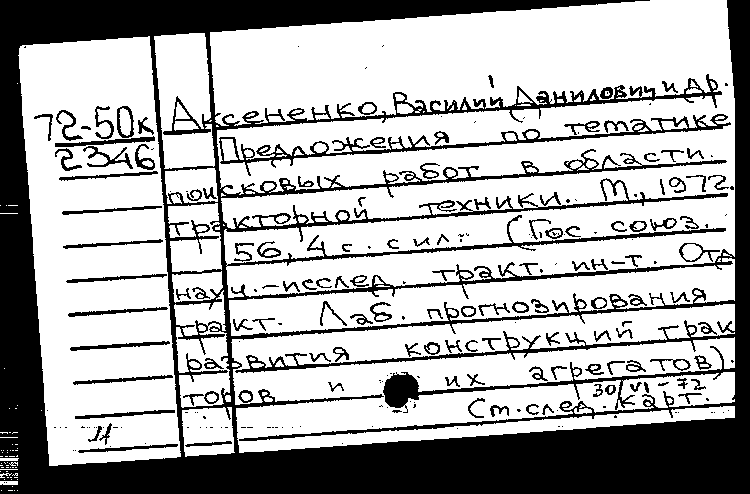 72-50к
2346
Аксененко, Василий Данилович, и др.
Предложения по тематике
поисковых работ в области
тракторной техники. М., 1972.
56, 4 с. с ил. (Гос. союз.
науч.-исслед. тракт. ин-т. Отд
тракт. Лаб. прогнозирования
развития конструкций трак
торов и их агрегатов).
30/VI-72
См. след. карт.